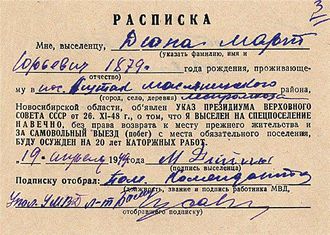 3
РАСПИСКА
Мне, выселенцу,
(указать фамилию, имя и
Юрьевич 1879 г.
отчество) года рождения, проживающе-
му в пос. района,
(город, село, деревня)
Новосибирской области, об'явлен УКАЗ ПРЕЗИДИУМА ВЕРХОВНОГО
СОВЕТА СССР от 26. XI-48 г., о том, что Я ВЫСЕЛЕН НА СПЕЦПОСЕЛЕНИЕ
НАВЕЧНО, без права возврата к месту прежнего жительства и
ЗА САМОВОЛЬНЫЙ ВЫЕЗД (побег) с места обязательного поселения,
БУДУ ОСУЖДЕН НА 20 ЛЕТ КАТОРЖНЫХ РАБОТ.
19 апреля 1949
(подпись выселенца)
Подписку отобрал: Пом. Коменданта
(должность, звание и подпись работника МВД,
отобравшего подписку)